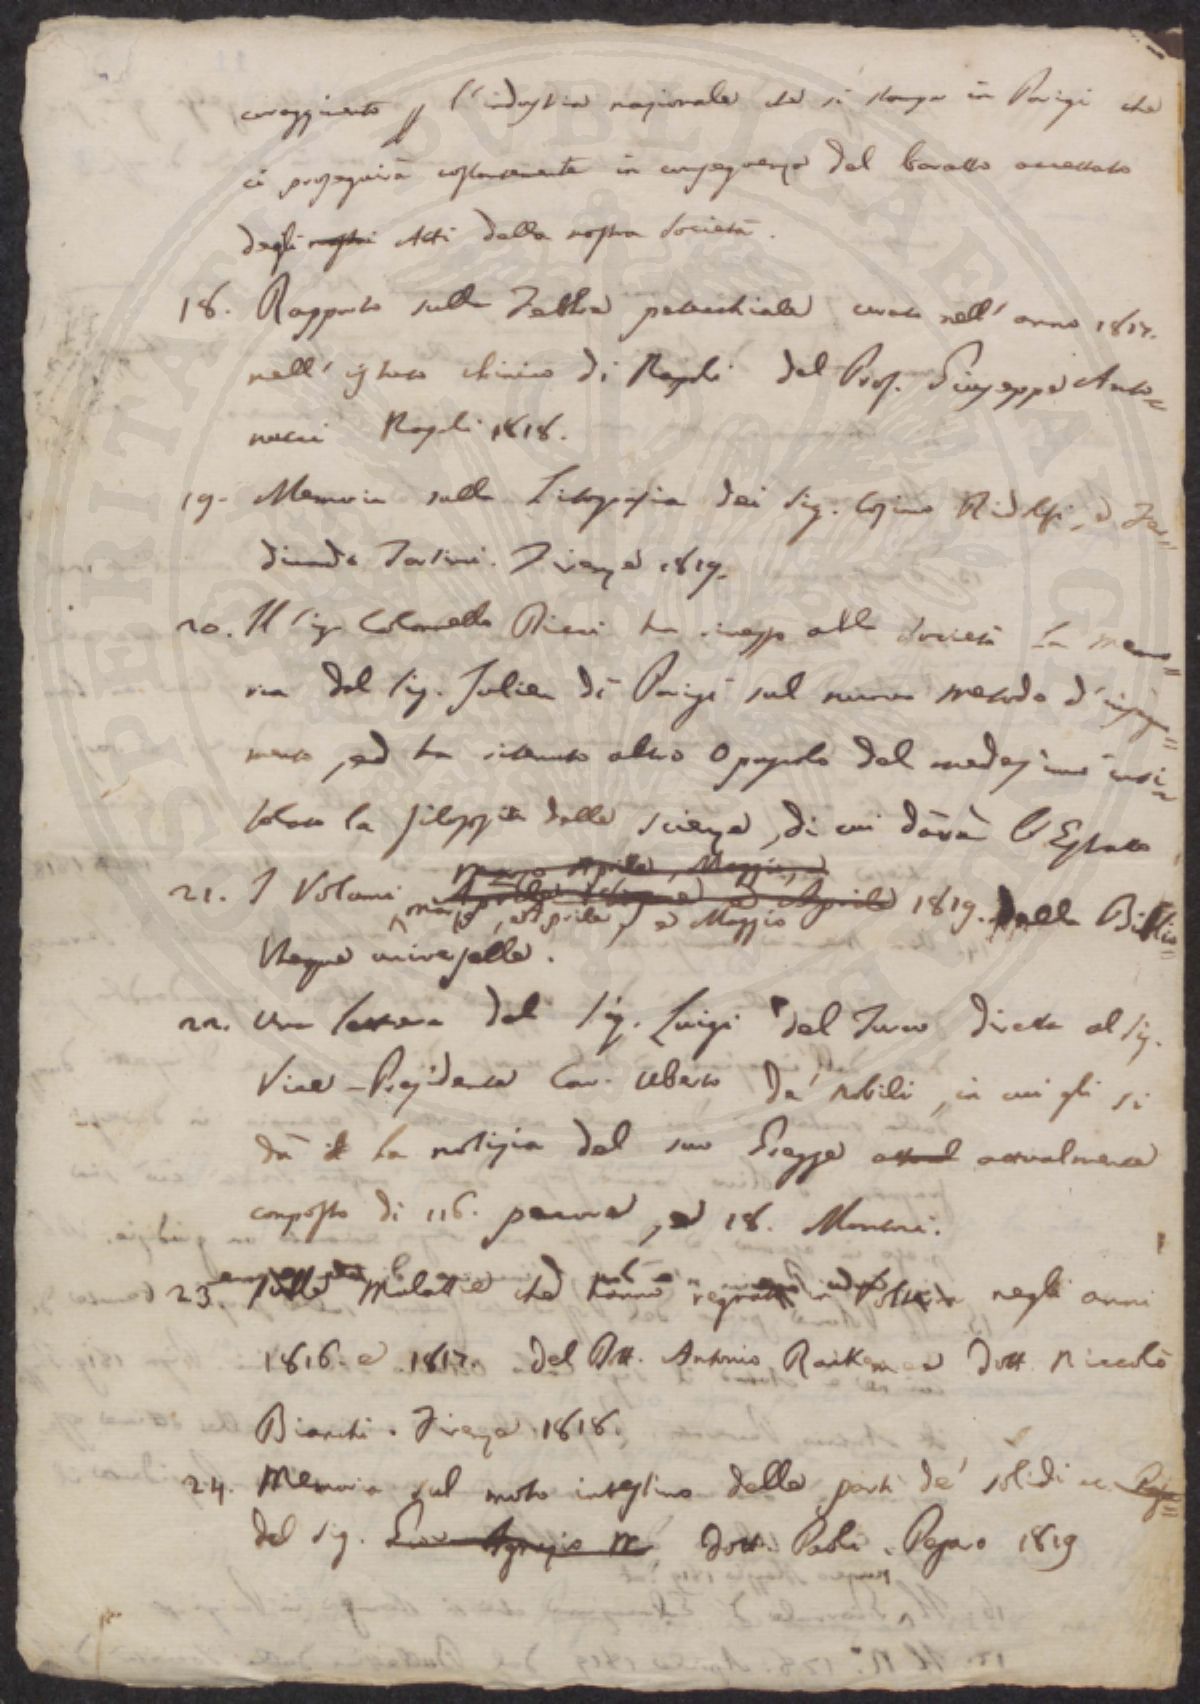 coraggimento p l'industria nazionale che si stampa in Parigi che
ci proseguirà costantemente in conseguenza del baratto accettato
degli nostri Atti della nostra Società.
18. Rapporto sulla Febbre petecchiale curata nell'anno 1817.
nell'istituto clinico di Napoli del Prof. Giuseppe Anto=
nucci Napoli 1818.
19. Memoria sulla Litografia dei Sig. Cosimo Ridolfi, e Fer=
dinando Tartini. Firenze 1819.
20. Il Sig. Colonnello Ricci ha rimesso alla Società la memo=
ria del Sig. Julien di Parigi sul nuovo metodo d'insegna=
mento, ed ha ritenuto altro Opuscolo del medesimo inti=
tolato la filosofia delle scienze, di cui darà l'Estratto
marzo Aprile, Maggio, e
21. I Volumi e Aprile 1819. della Biblio=
marzo, Aprile, e Maggio
theque universelle.
22. Una lettera del Sig. Luigi del Turco diretta al Sig.
Vice-Presidente Cav. Uberto de' Nobili, in cui gli si
dà il la notizia del suo Gregge attual attualmente
composto di 116. pecore, e 18. Montoni.
23 sulle Malattie che hanno regnato in negli anni
1816. e 1817. del Dott. Antonio Raikem e Dott. Niccolò
Bianchi. Firenze 1818.
24. Memoria sul moto intestino delle parti de' solidi
del Sig. Dott. Paoli. Pesaro 1819